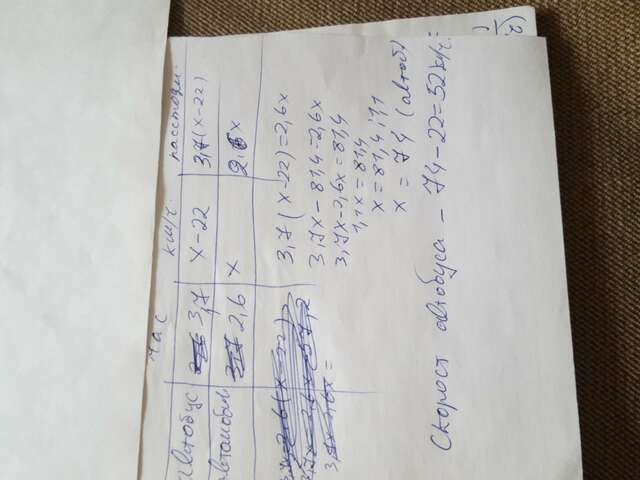 час км/ч. расстоян.
автобус 3,7 x-22 3,7(x-22)
автомобил 2,6 x 2,6x
3,7(x-22)=2,6x
3,7x-81,4=2,6x
3,7x-2,6x=81,4
1,1x=81,4
x=81,4:1,1
x=74 (автоб)
Скорост автобуса - 74-22=52км/ч.